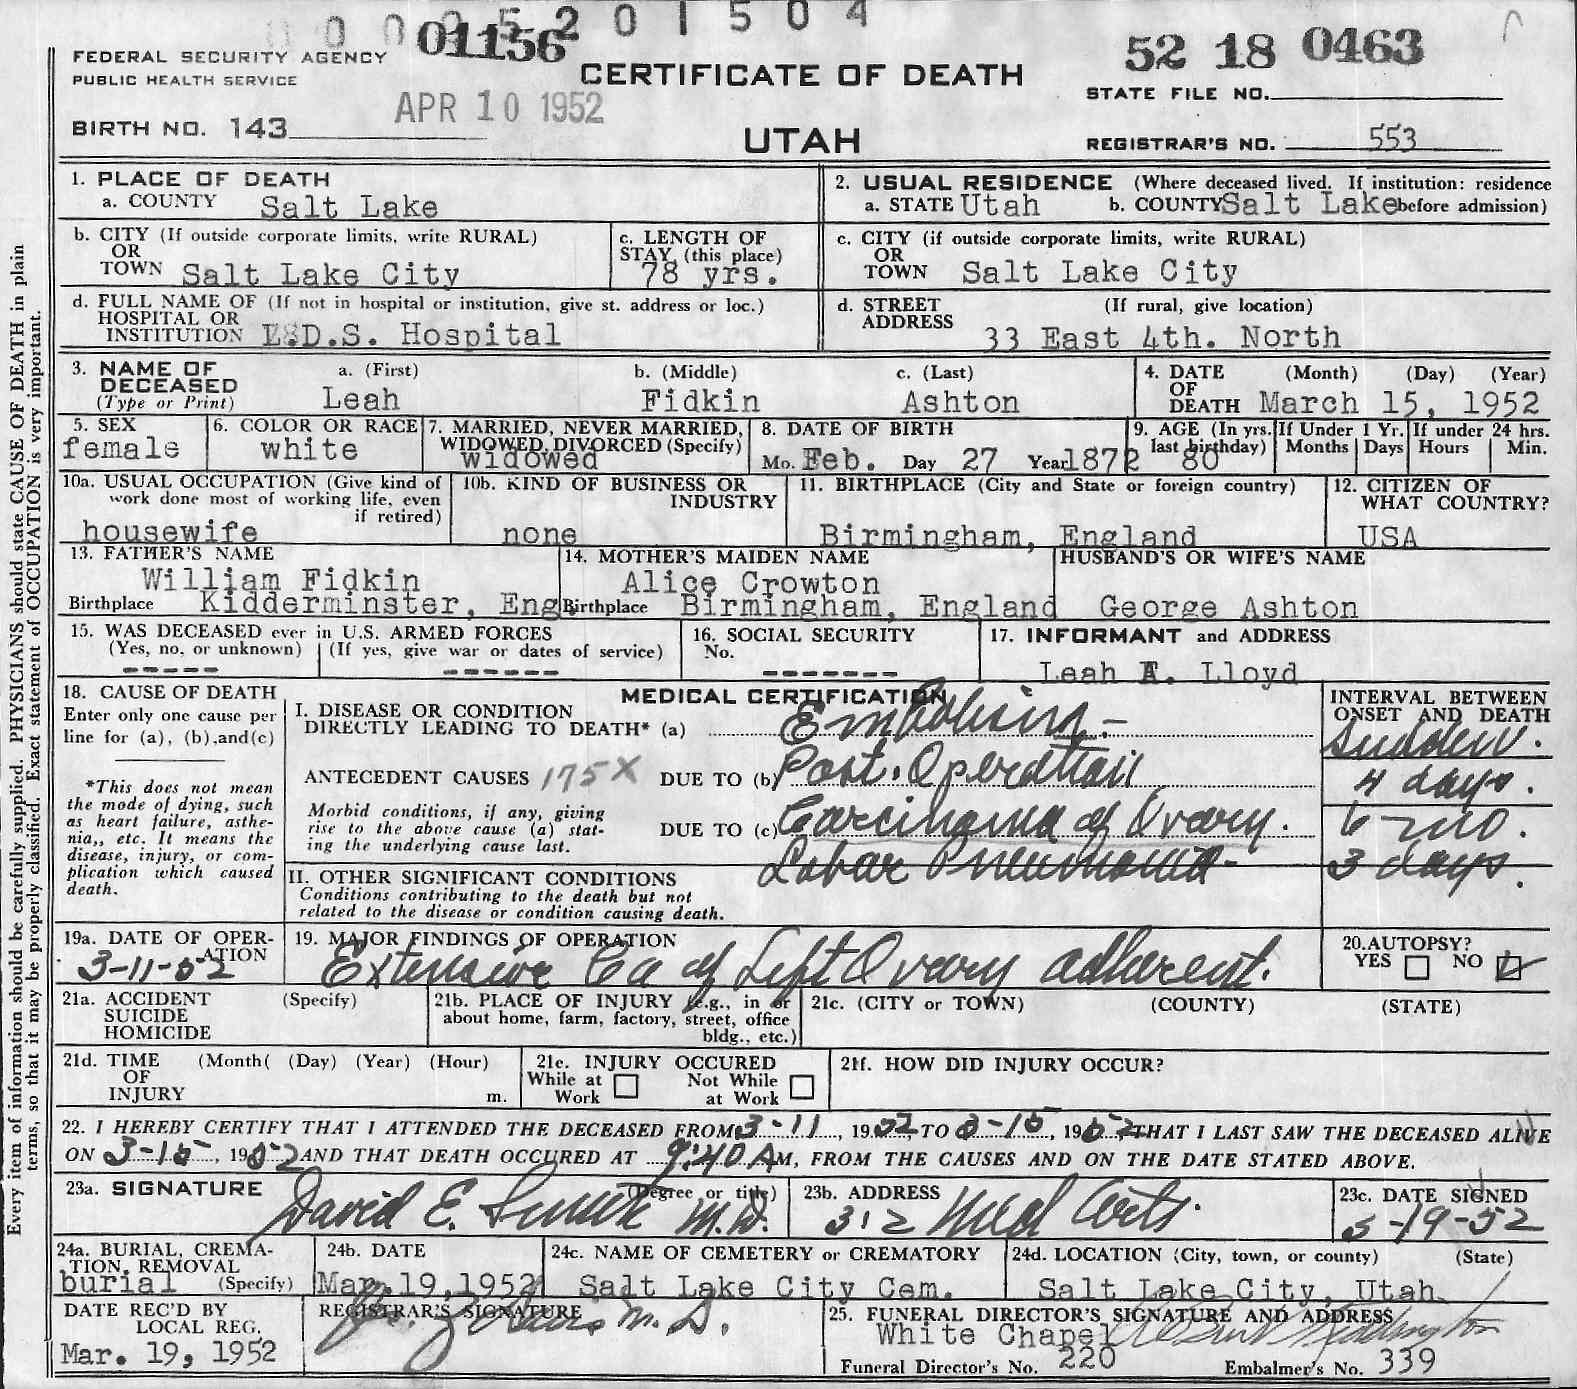 01156
0 0 0 2 5 2 0 1 5 0 4
52 18 0463
FEDERAL SECURITY AGENCY
PUBLIC HEALTH SERVICE
CERTIFICATE OF DEATH
STATE FILE NO.
APR 10 1952
BIRTH NO. 143
UTAH
REGISTRAR'S NO. 553
Every item of information should be carefully supplied. PHYSICIANS should state CAUSE OF DEATH in plain
terms, so that it may be properly classified. Exact statement of OCCUPATION is very important.
1. PLACE OF DEATH
a. COUNTY Salt Lake
2. USUAL RESIDENCE (Where deceased lived. If institution: residence
a. STATE Utah b. COUNTY Salt Lake before admission)
b. CITY (If outside corporate limits, write RURAL)
OR
TOWN Salt Lake City
c. LENGTH OF
STAY (this place)
78 yrs.
c. CITY (if outside corporate limits, write RURAL)
OR
TOWN Salt Lake City
d. FULL NAME OF (If not in hospital or institution, give st. address or loc.)
HOSPITAL OR
INSTITUTION L.D.S. Hospital
d. STREET (If rural, give location)
ADDRESS 33 East 4th. North
3. NAME OF
DECEASED
(Type or Print)
a. (First)
Leah
b. (Middle)
Fidkin
c. (Last)
Ashton
4. DATE (Month) (Day) (Year)
OF
DEATH March 15, 1952
5. SEX
female
6. COLOR OR RACE
white
7. MARRIED, NEVER MARRIED,
WIDOWED, DIVORCED (Specify)
widowed
8. DATE OF BIRTH
Mo. Feb. Day 27 Year 1872
9. AGE (In yrs.
last birthday)
80
If Under 1 Yr.
Months Days
If under 24 hrs.
Hours Min.
10a. USUAL OCCUPATION (Give kind of
work done most of working life, even
if retired)
housewife
10b. KIND OF BUSINESS OR
INDUSTRY
none
11. BIRTHPLACE (City and State or foreign country)
Birmingham, England
12. CITIZEN OF
WHAT COUNTRY?
USA
13. FATHER'S NAME
William Fidkin
Birthplace Kidderminster, Eng.
14. MOTHER'S MAIDEN NAME
Alice Crowton
Birthplace Birmingham, England
HUSBAND'S OR WIFE'S NAME
George Ashton
15. WAS DECEASED ever in U.S. ARMED FORCES
(Yes, no, or unknown) (If yes, give war or dates of service)
----- ------
16. SOCIAL SECURITY
No.
-------
17. INFORMANT and ADDRESS
Leah A. Lloyd
18. CAUSE OF DEATH
Enter only one cause per
line for (a), (b), and (c)
*This does not mean
the mode of dying, such
as heart failure, asthe-
nia,, etc. It means the
disease, injury, or com-
plication which caused
death.
MEDICAL CERTIFICATION
I. DISEASE OR CONDITION
DIRECTLY LEADING TO DEATH* (a) Embolism -
ANTECEDENT CAUSES 175X DUE TO (b) Post. Operation
Morbid conditions, if any, giving
rise to the above cause (a) stat-
ing the underlying cause last.
DUE TO (c) Carcinoma of Ovary.
II. OTHER SIGNIFICANT CONDITIONS
Conditions contributing to the death but not
related to the disease or condition causing death.
Lobar Pneumonia
INTERVAL BETWEEN
ONSET AND DEATH
Sudden.
4 days.
6 mo.
3 days.
19a. DATE OF OPER-
ATION
3-11-52
19. MAJOR FINDINGS OF OPERATION
Extensive Ca of Left Ovary adherent.
20. AUTOPSY?
YES NO
21a. ACCIDENT (Specify)
SUICIDE
HOMICIDE
21b. PLACE OF INJURY (e.g., in or
about home, farm, factory, street, office
bldg., etc.)
21c. (CITY or TOWN) (COUNTY) (STATE)
21d. TIME (Month( (Day) (Year) (Hour)
OF
INJURY m.
21e. INJURY OCCURED
While at Work
Not While at Work
21f. HOW DID INJURY OCCUR?
22. I HEREBY CERTIFY THAT I ATTENDED THE DECEASED FROM 3-11, 1952, TO 3-15, 1952, THAT I LAST SAW THE DECEASED ALIVE
ON 3-15, 1952 AND THAT DEATH OCCURED AT 9:40 AM, FROM THE CAUSES AND ON THE DATE STATED ABOVE.
23a. SIGNATURE (Degree or title)
David E. Smith M.D.
23b. ADDRESS
312 Med Arts.
23c. DATE SIGNED
3-19-52
24a. BURIAL, CREMA-
TION, REMOVAL
burial (Specify)
24b. DATE
Mar. 19, 1952
24c. NAME OF CEMETERY or CREMATORY
Salt Lake City Cem.
24d. LOCATION (City, town, or county) (State)
Salt Lake City, Utah
DATE REC'D BY
LOCAL REG.
Mar. 19, 1952
REGISTRAR'S SIGNATURE
M. D.
25. FUNERAL DIRECTOR'S SIGNATURE AND ADDRESS
White Chapel
Funeral Director's No. 220 Embalmer's No. 339